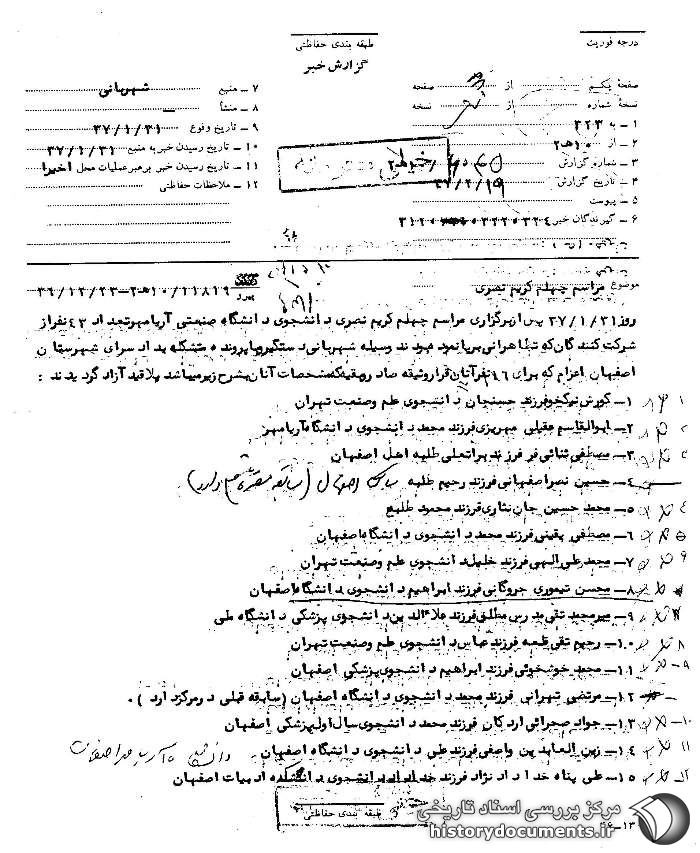 درجه فوریت
طبقه بندی حفاظتی
گزارش خبر
صفحهٔ یکم از صفحه
نسخهٔ شماره از نسخه
۱ ـ به ۳۲۳
۲ ـ از ۱۰ هـ ۲
۳ ـ شماره گزارش
۴ ـ تاریخ گزارش ۳۷/۲/۱۹
۵ ـ پیوست
۶ ـ گیرندگان خبر
۷ ـ منبع شهربانی
۸ ـ منشأ
۹ ـ تاریخ وقوع ۳۷/۱/۳۱
۱۰ ـ تاریخ رسیدن خبر به منبع ۳۷/۱/۳۱
۱۱ ـ تاریخ رسیدن خبر برهبر عملیات محل اخیرا
۱۲ ـ ملاحظات حفاظتی
موضوع مراسم چهلم کریم نصری
پیرو ۱۱۸۱۹/۱۰هـ۲-۳۶/۱۲/۲۳
روز ۳۷/۱/۳۱ پس از برگزاری مراسم چهلم کریم نصری دانشجوی دانشگاه صنعتی آریامهر تعداد ۴۳ نفر از
شرکت کنندگان که تظاهراتی برپا نموده بودند وسیله شهربانی دستگیر و با پرونده متشکله بدادسرای شهرستان
اصفهان اعزام که برای ۱۶ نفر آنان قرار وثیقه صادر و بقیه که مشخصات آنان بشرح زیر میباشد بلاقید آزاد گردیدند :
۱ـ کورش نیکخو فرزند حسینجان دانشجوی علم وصنعت تهران
۲ـ ابوالقاسم عقیلی مهریزی فرزند محمد دانشجوی دانشگاه آریامهر
۳ـ مصطفی ثنائی فر فرزند براتعلی طلبه اهل اصفهان
۴ـ حسین نصراصفهانی فرزند رحیم طلبه
۵ـ محمد حسین جان نثاری فرزند محمود طلبه
۶ـ مصطفی یقینی فرزند محمد دانشجوی دانشگاه اصفهان
۷ـ محمدعلی الهی فرزند خلیل دانشجوی علم وصنعت تهران
۸ـ محسن تیموری جروکانی فرزند ابراهیم دانشجوی دانشگاه اصفهان
۹ـ میرمحمد تقی مدرس مطلق فرزند علاءالدین دانشجوی پزشکی دانشگاه ملی
۱۰ـ رحیم تقی قلعه فرزند عباس دانشجوی علم وصنعت تهران
۱۱ـ مجید خوشخوئی فرزند ابراهیم دانشجوی پزشکی اصفهان
۱۲ـ مرتضی تهرانی فرزند محمد دانشجوی دانشگاه اصفهان (سابقه قبلی در مرکز دارد ) .
۱۳ـ جواد صحرائی اردکان فرزند محمد دانشجوی سال اول پزشکی اصفهان
۱۴ـ زین العابدین واصفی فرزند علی دانشجوی دانشگاه اصفهان
۱۵ـ علی پناه خداداد نژاد فرزند خداداد دانشجوی دانشکده ادبیات اصفهان
طبقه بندی حفاظتی
مرکز بررسی اسناد تاریخی
historydocuments.ir